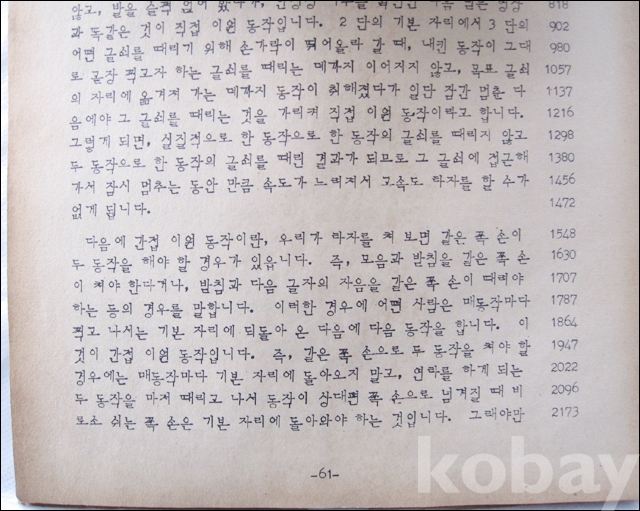 않고, 발을 818
과 똑같은 것이 직접 이원 동작입니다. 2 단의 기본 자리에서 3 단의 902
어떤 글쇠를 때리기 위해 손가락이 뛰어올라 갈 때, 내킨 동작이 그대 980
로 곧장 찍고자 하는 글쇠를 때리는 데까지 이어지지 않고, 목표 글쇠 1057
의 자리에 옮겨져 가는 데까지 동작이 취해졌다가 일단 잠깐 멈춘 다 1137
음에야 그 글쇠를 때리는 것을 가리켜 직접 이원 동작이라고 합니다. 1216
그렇게 되면, 실질적으로 한 동작으로 한 동작의 글쇠를 때리지 않고 1298
두 동작으로 한 동작의 글쇠를 때린 결과가 되므로 그 글쇠에 접근해 1380
가서 잠시 멈추는 동안 만큼 속도가 느려져서 고속도 타자를 할 수가 1456
없게 됩니다. 1472
다음에 간접 이원 동작이란, 우리가 타자를 쳐 보면 같은 쪽 손이 1548
두 동작을 해야 할 경우가 있읍니다. 즉, 모음과 받침을 같은 쪽 손 1630
이 쳐야 한다거나, 받침과 다음 글자의 자음을 같은 쪽 손이 때려야 1707
하는 등의 경우를 말합니다. 이러한 경우에 어떤 사람은 매동작마다 1787
찍고 나서는 기본 자리에 되돌아 온 다음에 다음 동작을 합니다. 이 1864
것이 간접 이원 동작입니다. 즉, 같은 쪽 손으로 두 동작을 쳐야 할 1947
경우에는 매동작마다 기본 자리에 돌아오지 말고, 연학를 하게 되는 2022
두 동작을 마저 때리고 나서 동작이 상대편 쪽 손으로 넘겨질 때 비 2096
로소 쉬는 쪽 손은 기본 자리에 돌아와야 하는 것입니다. 그래야만 2173
-61-
kobay